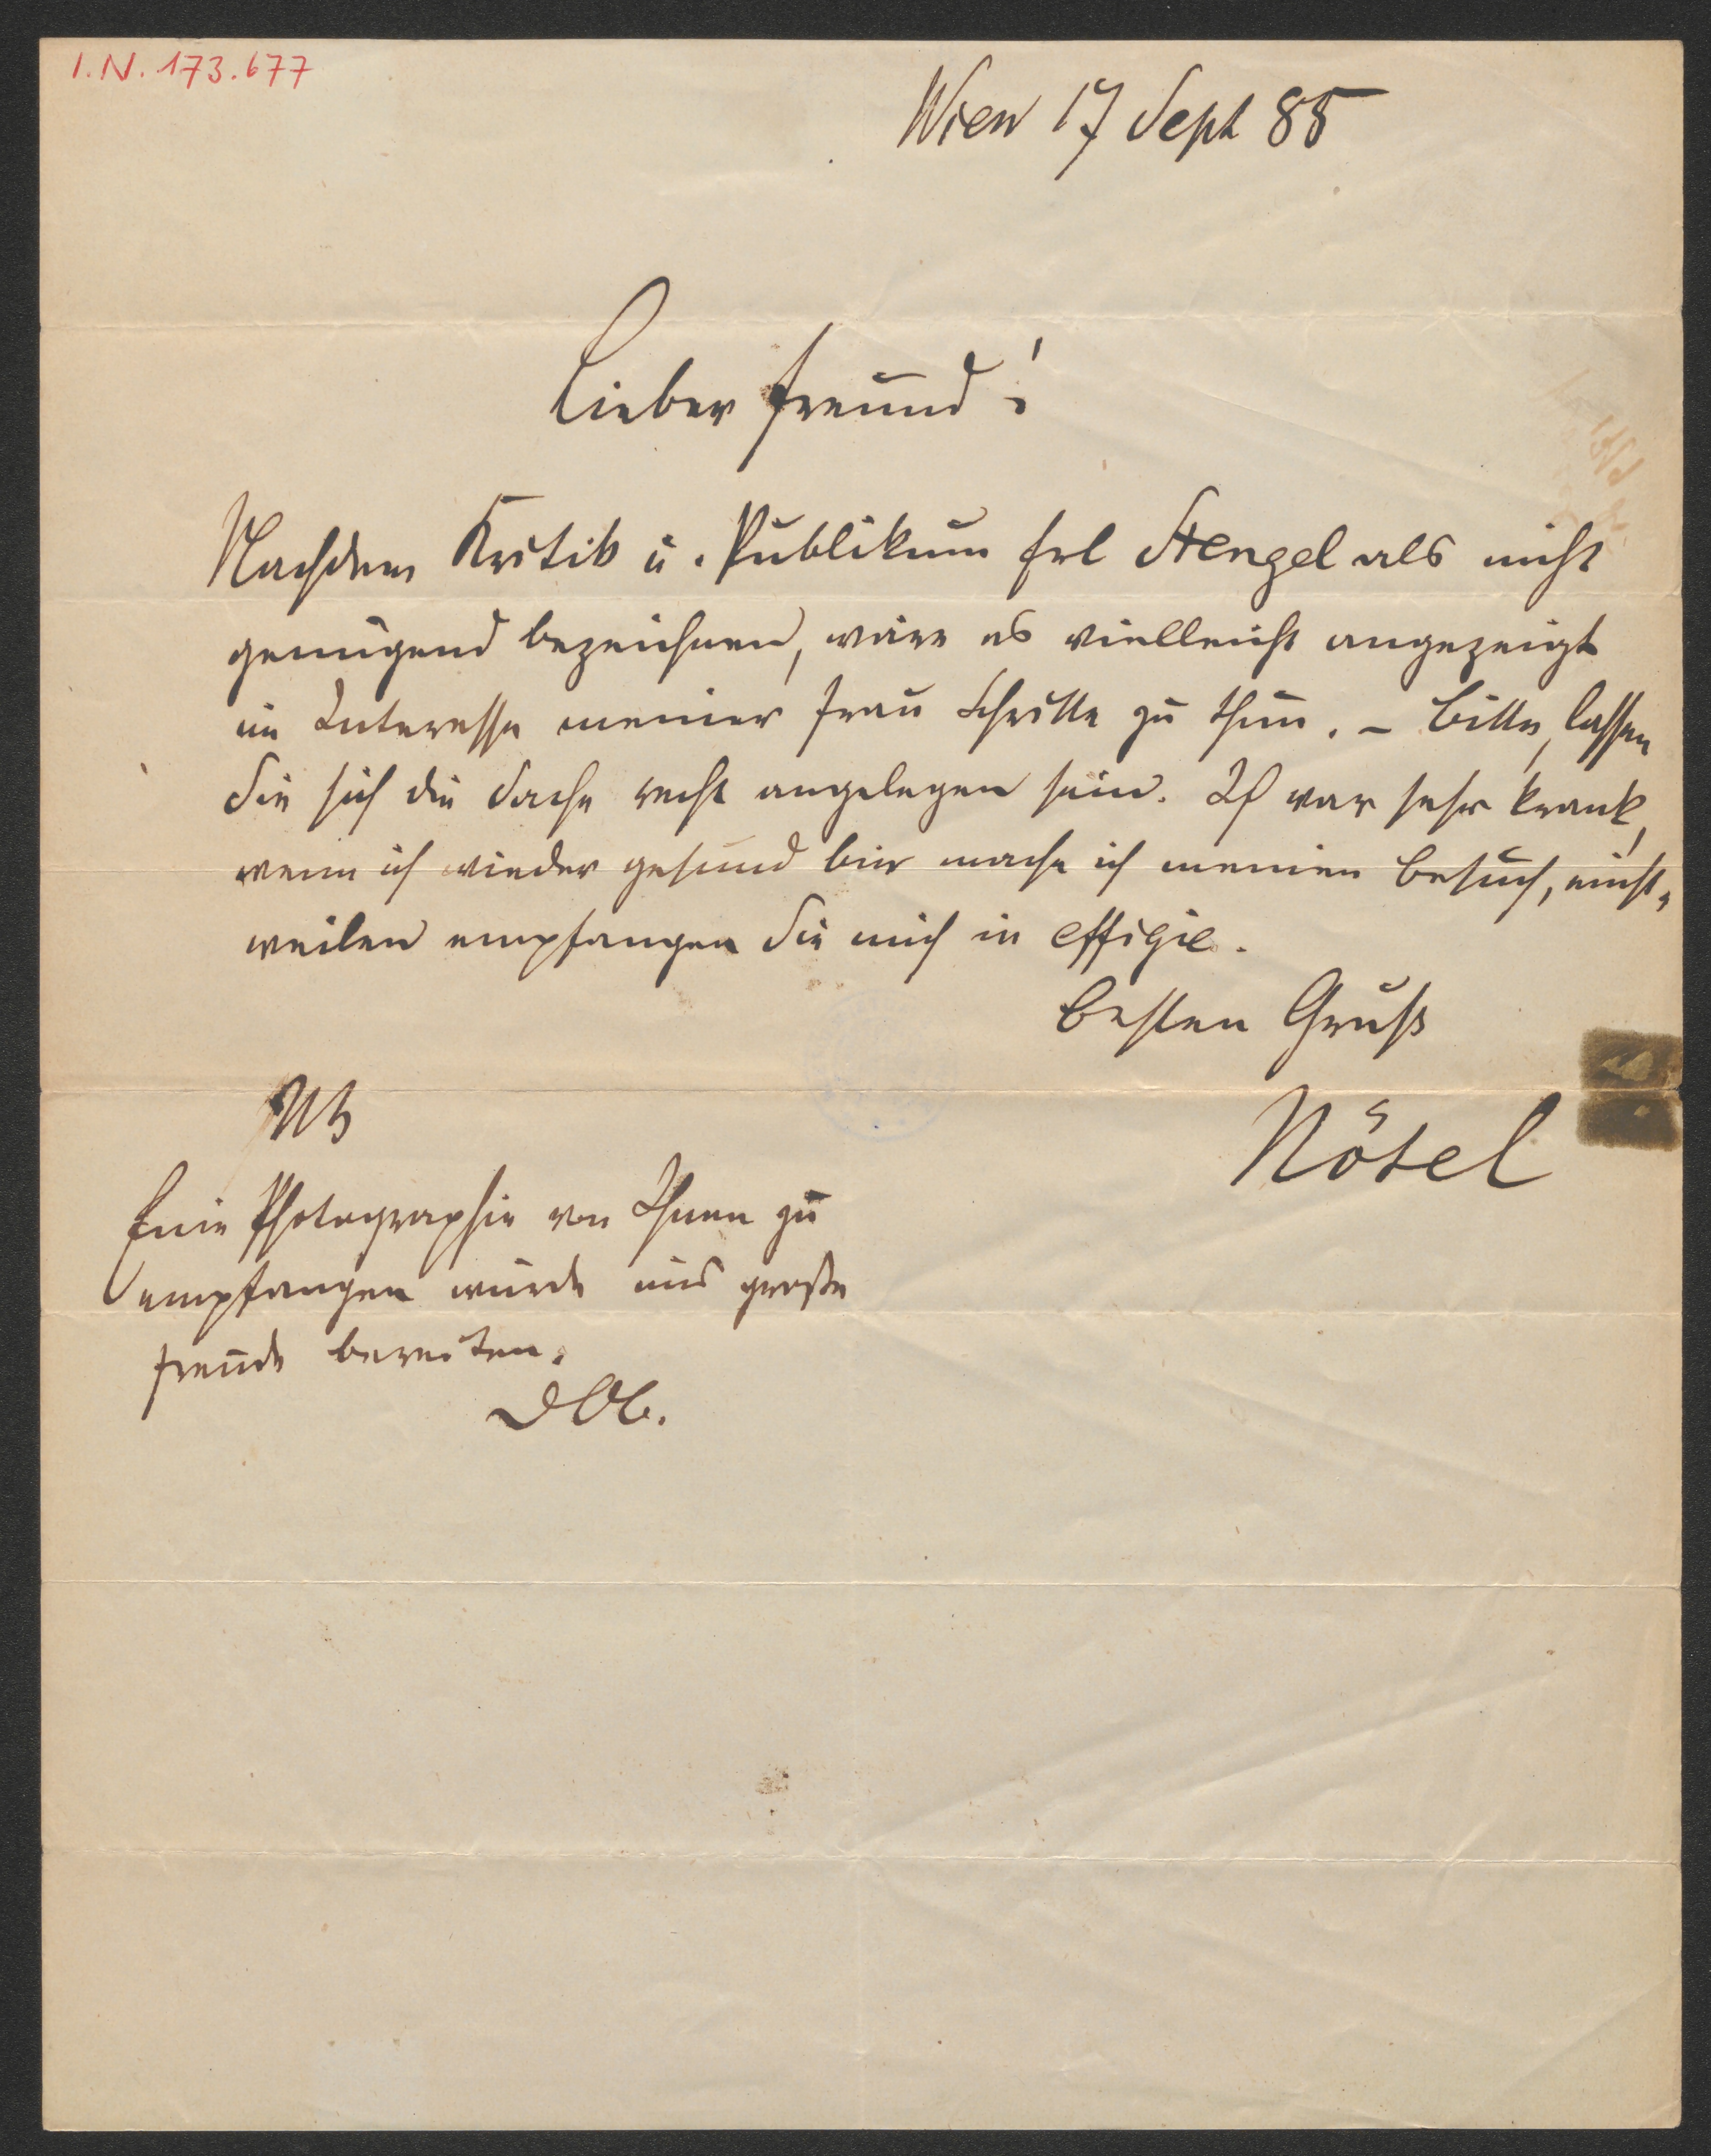 I.N. 173.677
Wien 17 Sept 85
Lieber Freund!
Nachdem Kritik u. Publikum Frl Stengel als nicht
genügend bezeichnen, wäre es vielleicht angezeigt
im Interesse meiner Frau Schritte zu thun. – Bitte, lassen
Sie sich die Sache recht angelegen sein. Ich war sehr krank,
wenn ich wieder gesund bin mache ich meinen Besuch, einst-
weilen empfangen Sie mich in effigie.
Besten Gruß
Nötel
NB
Eine Photographie von Ihnen zu
empfangen würde uns große
Freude bereiten.
DOb.